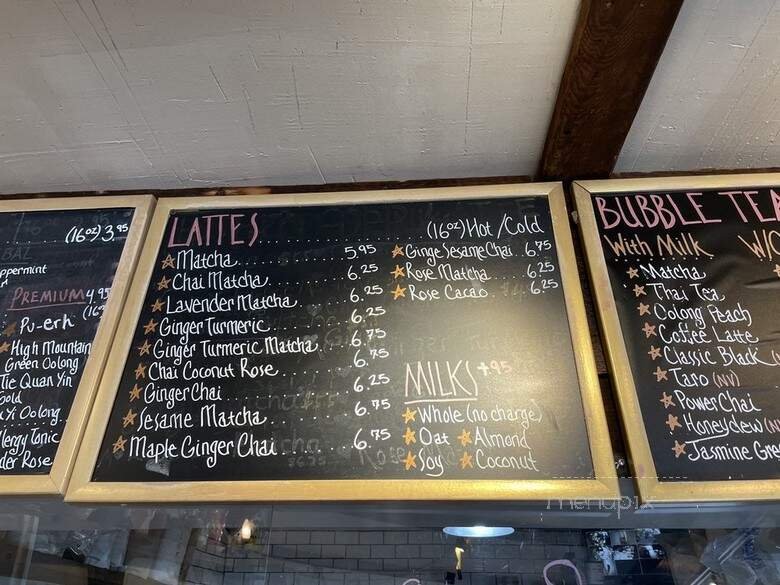 (16oz) 3.95
BAL
ppermint
PREMIUM 4.95
Pu-erh
High Mountain
Green Oolong
Tie Quan Yin
Gold
Yi Oolong
lergy Tonic
der Rose
LATTES (16oz) Hot/Cold
Matcha 5.95
Chai Matcha 6.25
Lavender Matcha 6.25
Ginger Turmeric 6.25
Ginger Turmeric Matcha 6.75
Chai Coconut Rose 6.75
Ginger Chai 6.25
Sesame Matcha 6.75
Maple Ginger Chai 6.75
Ginge Sesame Chai 6.75
Rose Matcha 6.25
Rose Cacao 6.25
MILKS +95
Whole (no charge)
Oat Almond
Soy Coconut
BUBBLE TEA
With Milk W/O
Matcha
Thai Tea
Oolong Peach
Coffee Latte
Classic Black
Taro (NV)
Power Chai
Honeydew (N
Jasmine Gre
menupix